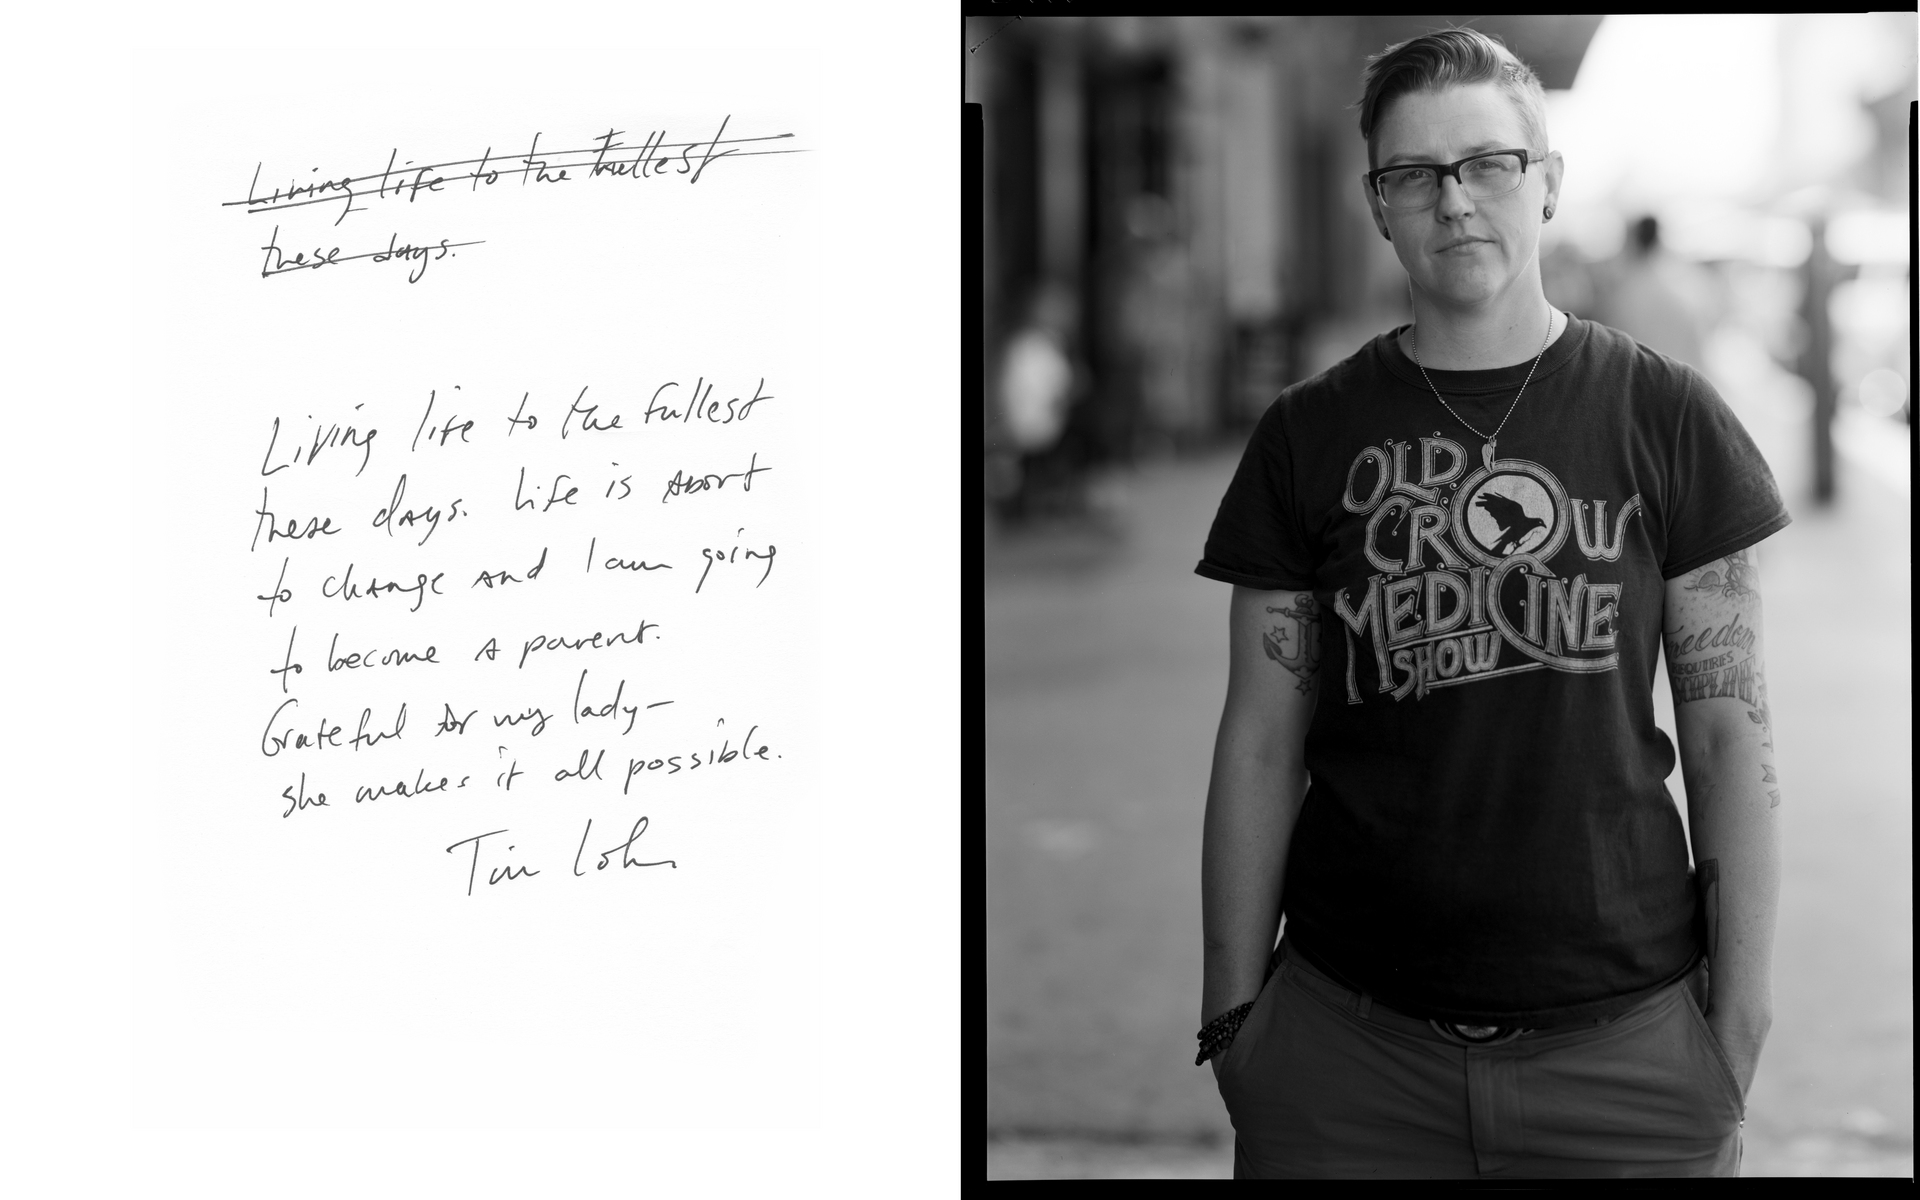 Living life to the fullest
these days.
Living life to the fullest
these days. Life is about
to change and I am going
to become a parent.
Grateful for my lady-
she makes it all possible.
Tim
OLD
CROW
MEDICINE
SHOW
Freedom
REQUIRES